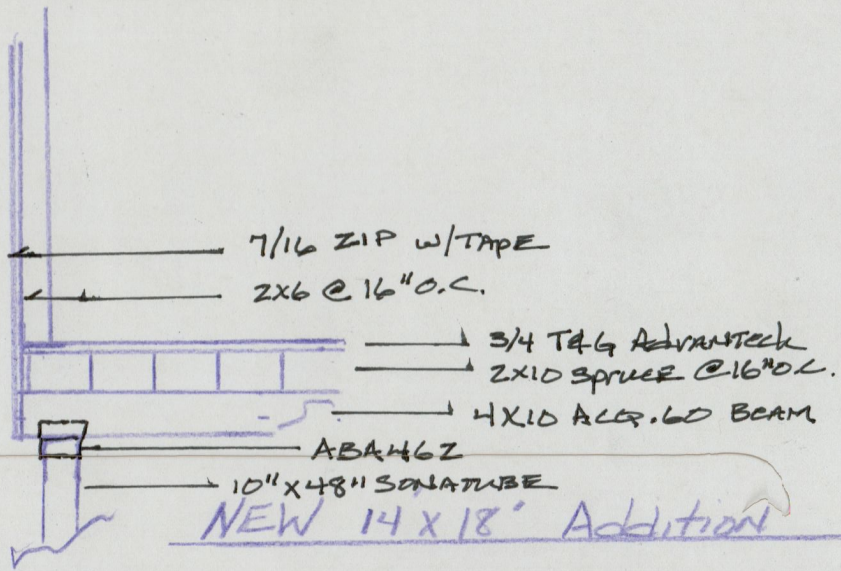 7/16 ZIP W/TAPE
2X6 @ 16" O.C.
3/4 T&G AdvANTEck
2X10 SpruCE @ 16" O.C.
4X10 ACQ.60 BEAM
ABA46Z
10" X 48" SONATUBE
NEW 14 X 18' Addition